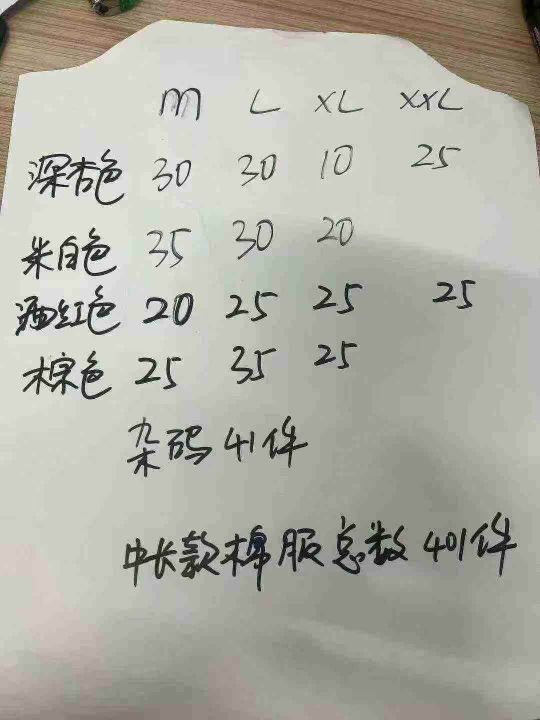 M L XL XXL
深杏色 30 30 10 25
米白色 35 30 20
酒红色 20 25 25 25
棕色 25 35 25
杂码41件
中长款棉服总数401件